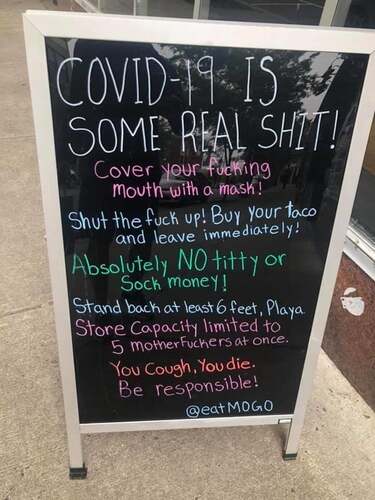 COVID-19 IS
SOME REAL SHIT!
Cover your fucking
mouth with a mask!
Shut the fuck up! Buy your taco
and leave immediately!
Absolutely NO titty or
Sock money!
Stand back at least 6 feet, Playa.
Store Capacity limited to
5 motherfuckers at once.
You Cough, You die.
Be responsible!
@eatMOGO